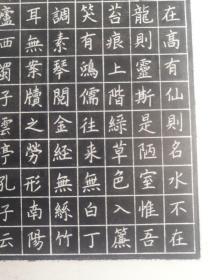 在高有仙則名水不在
龍則靈斯是陋室惟吾
苔痕上階綠草色入簾
笑有鴻儒往来無白丁
調素琴閱金經無絲竹
耳無案牘之勞形南陽
廬西蜀子雲亭孔子云